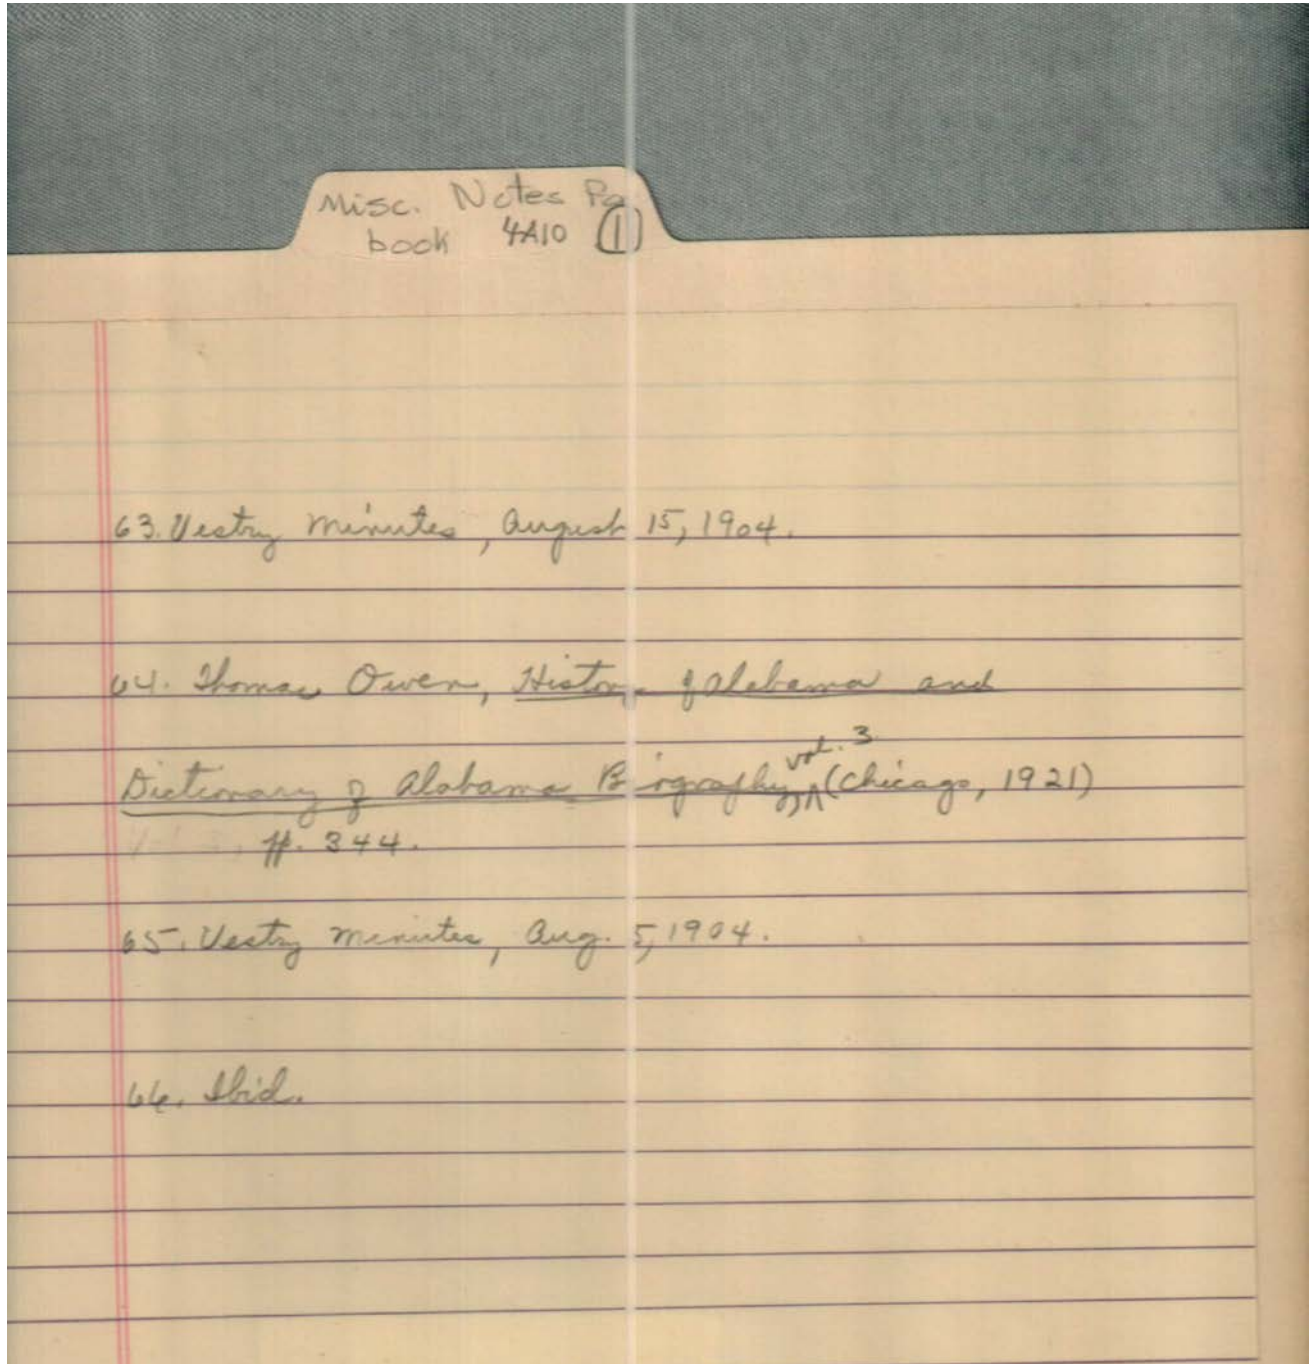 Misc. Notes Pg
book 4A10 (1)
63. Vestry Minutes, August 15, 1904.
64. Thomas Owen, History of Alabama and
Dictionary of Alabama Biography, vol. 3 (Chicago, 1921)
pp. 344.
65. Vestry Minutes, Aug. 5, 1904.
66. Ibid.